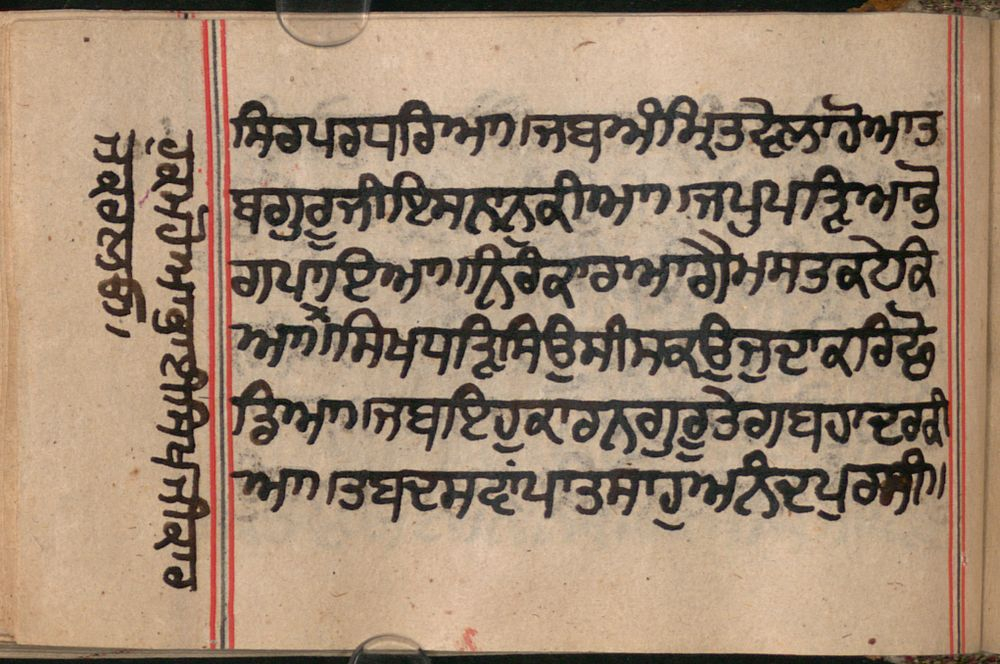 ਸਿਰਪਰਧਰਿਆ॥ਜਬਅੰਮ੍ਰਿਤਵੇਲਾਹੋਆਤ
ਬਗੁਰੂਜੀਇਸਨਾਨਕੀਆ॥ਜਪੁਪੜਿਆਭੋ
ਗਪਾਇਆ॥ਨਿਰੰਕਾਰਆਗੈਮਸਤਕਟੇਕਿ
ਆ॥ਸਿਖਧੜਿਸਿਉਸੀਸਕਉਜੁਦਾਕਰਿਛੋ
ਡਿਆ॥ਜਬਇਹੁਕਾਰਨਗੁਰੂਤੇਗਬਹਾਦਰਕੀ
ਆ॥ਤਬਦਸਵਾਂਪਾਤਸਾਹੁਅਨੰਦਪੁਰਸੀ॥
ਹੁਕਮੁਹੋਆਭਾਈਸਿਖਜੀਕਾਰ